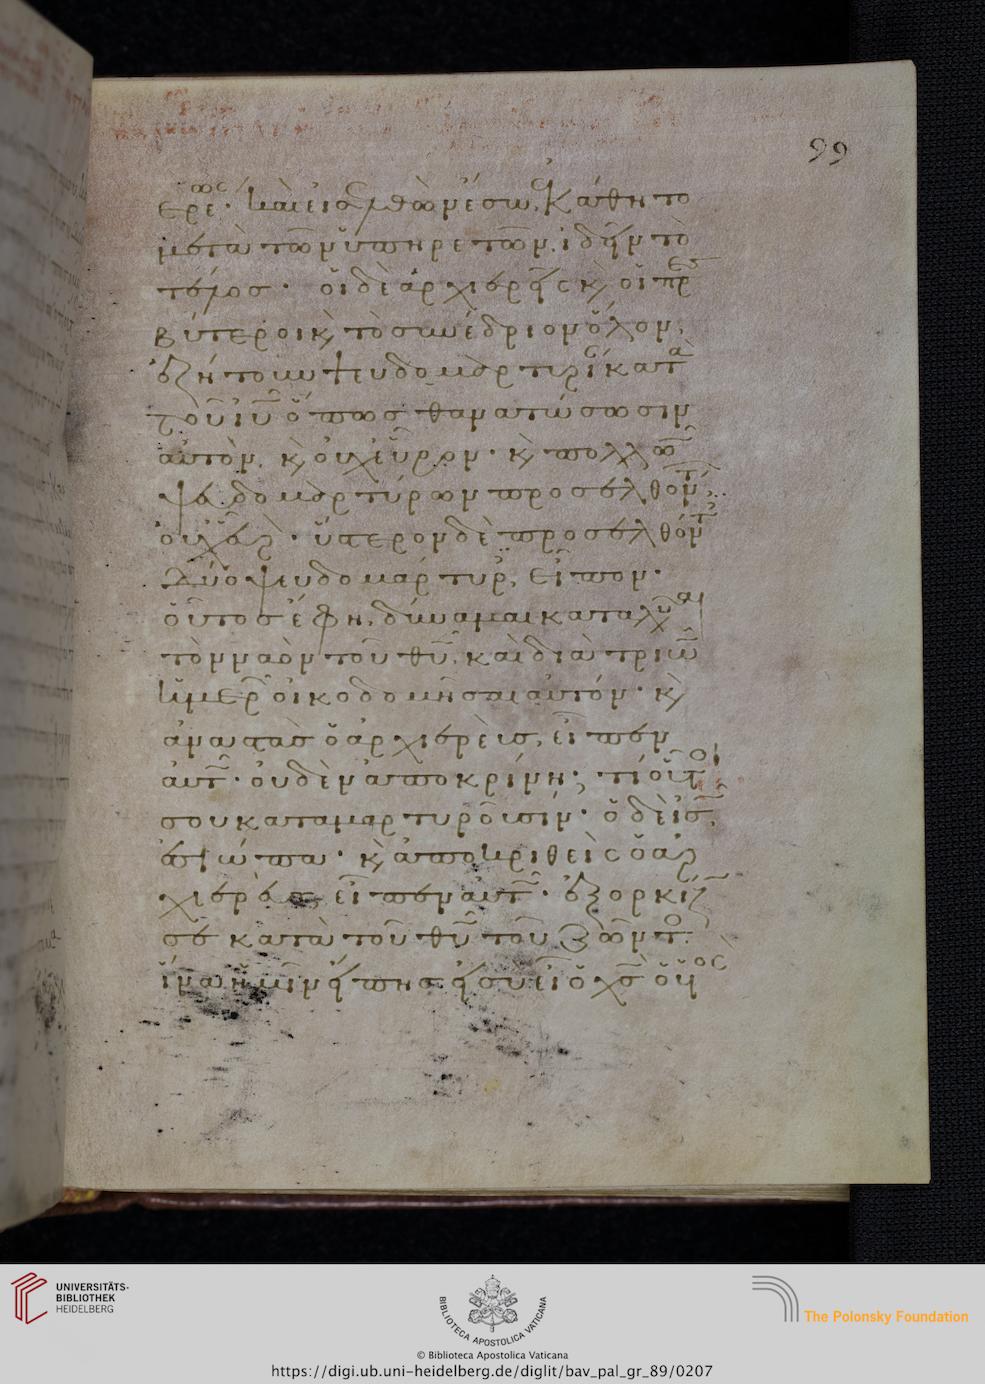 99
ερέως· καὶ εἰσελθὼν ἔσω, ἐκάθητο
μετὰ τῶν ὑπηρετῶν, ἰδεῖν τὸ
τέλος· οἱ δὲ ἀρχιερεῖς κ̀ οἱ πρεσ
βύτεροι κ̀ τὸ συνέδριον ὅλον,
ἐζήτουν ψευδομαρτυρίαν κατὰ
τοῦ ιῦ ὅπως θανατώσωσιν
αὐτὸν, κ̀ οὐχ εὗρον· κ̀ πολλῶν
ψευδομαρτύρων προσελθόντων,
οὐχ εὗρον· ὕστερον δὲ προσελθόντες
δύο ψευδομάρτυρες, εἶπον·
οὗτος ἔφη, δύναμαι καταλῦσαι
τὸν ναὸν τοῦ θῦ, καὶ διὰ τριῶν
ἡμερῶν οἰκοδομῆσαι αὐτόν· κ̀
ἀναστὰς ὁ ἀρχιερεὺς, εἶπεν
αὐτῷ· οὐδὲν ἀποκρίνη; τί οὗτοί
σου καταμαρτυροῦσιν· ὁ δὲ ις,
ἐσιώπα· κ̀ ἀποκριθεὶς ὁ ἀρ
χιερεὺς, εἶπεν αὐτῷ· ἐξορκίζω
σὲ κατὰ τοῦ θῦ τοῦ ζῶντος·
ἵνα ἡμῖν εἴπης εἰ σὺ εἶ ὁ χς ὁ υἱος
UNIVERSITÄTS-
BIBLIOTHEK
HEIDELBERG
BIBLIOTECA APOSTOLICA VATICANA
The Polonsky Foundation
© Biblioteca Apostolica Vaticana
https://digi.ub.uni-heidelberg.de/diglit/bav_pal_gr_89/0207